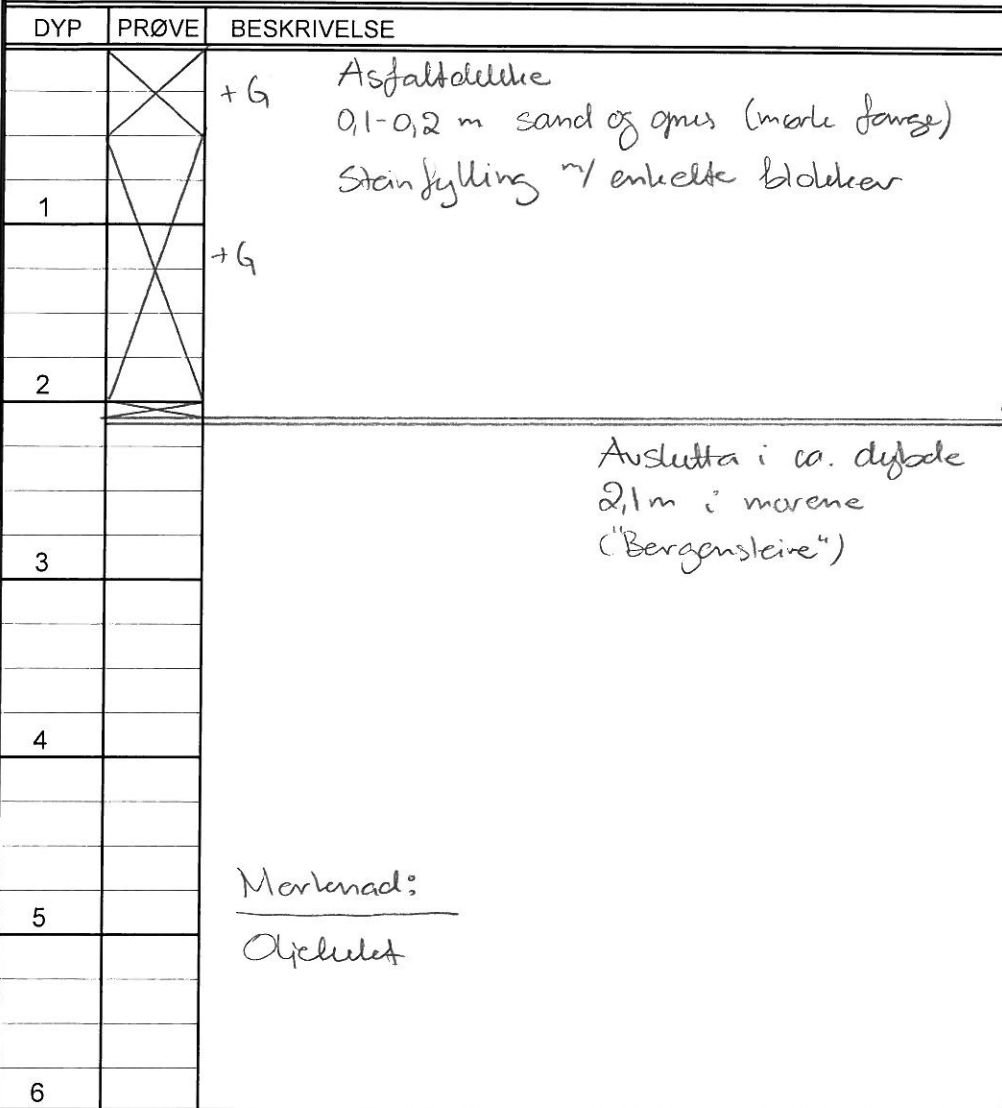 DYP PRØVE BESKRIVELSE
+ G Asfaltdekke
0,1-0,2 m sand og grus (mørk farge)
Steinfylling m/ enkelte blokker
1
+ G
2
Avslutta i ca. dybde
2,1 m i morene
("Bergensleire")
3
4
Merknad:
5
Oljelukt
6